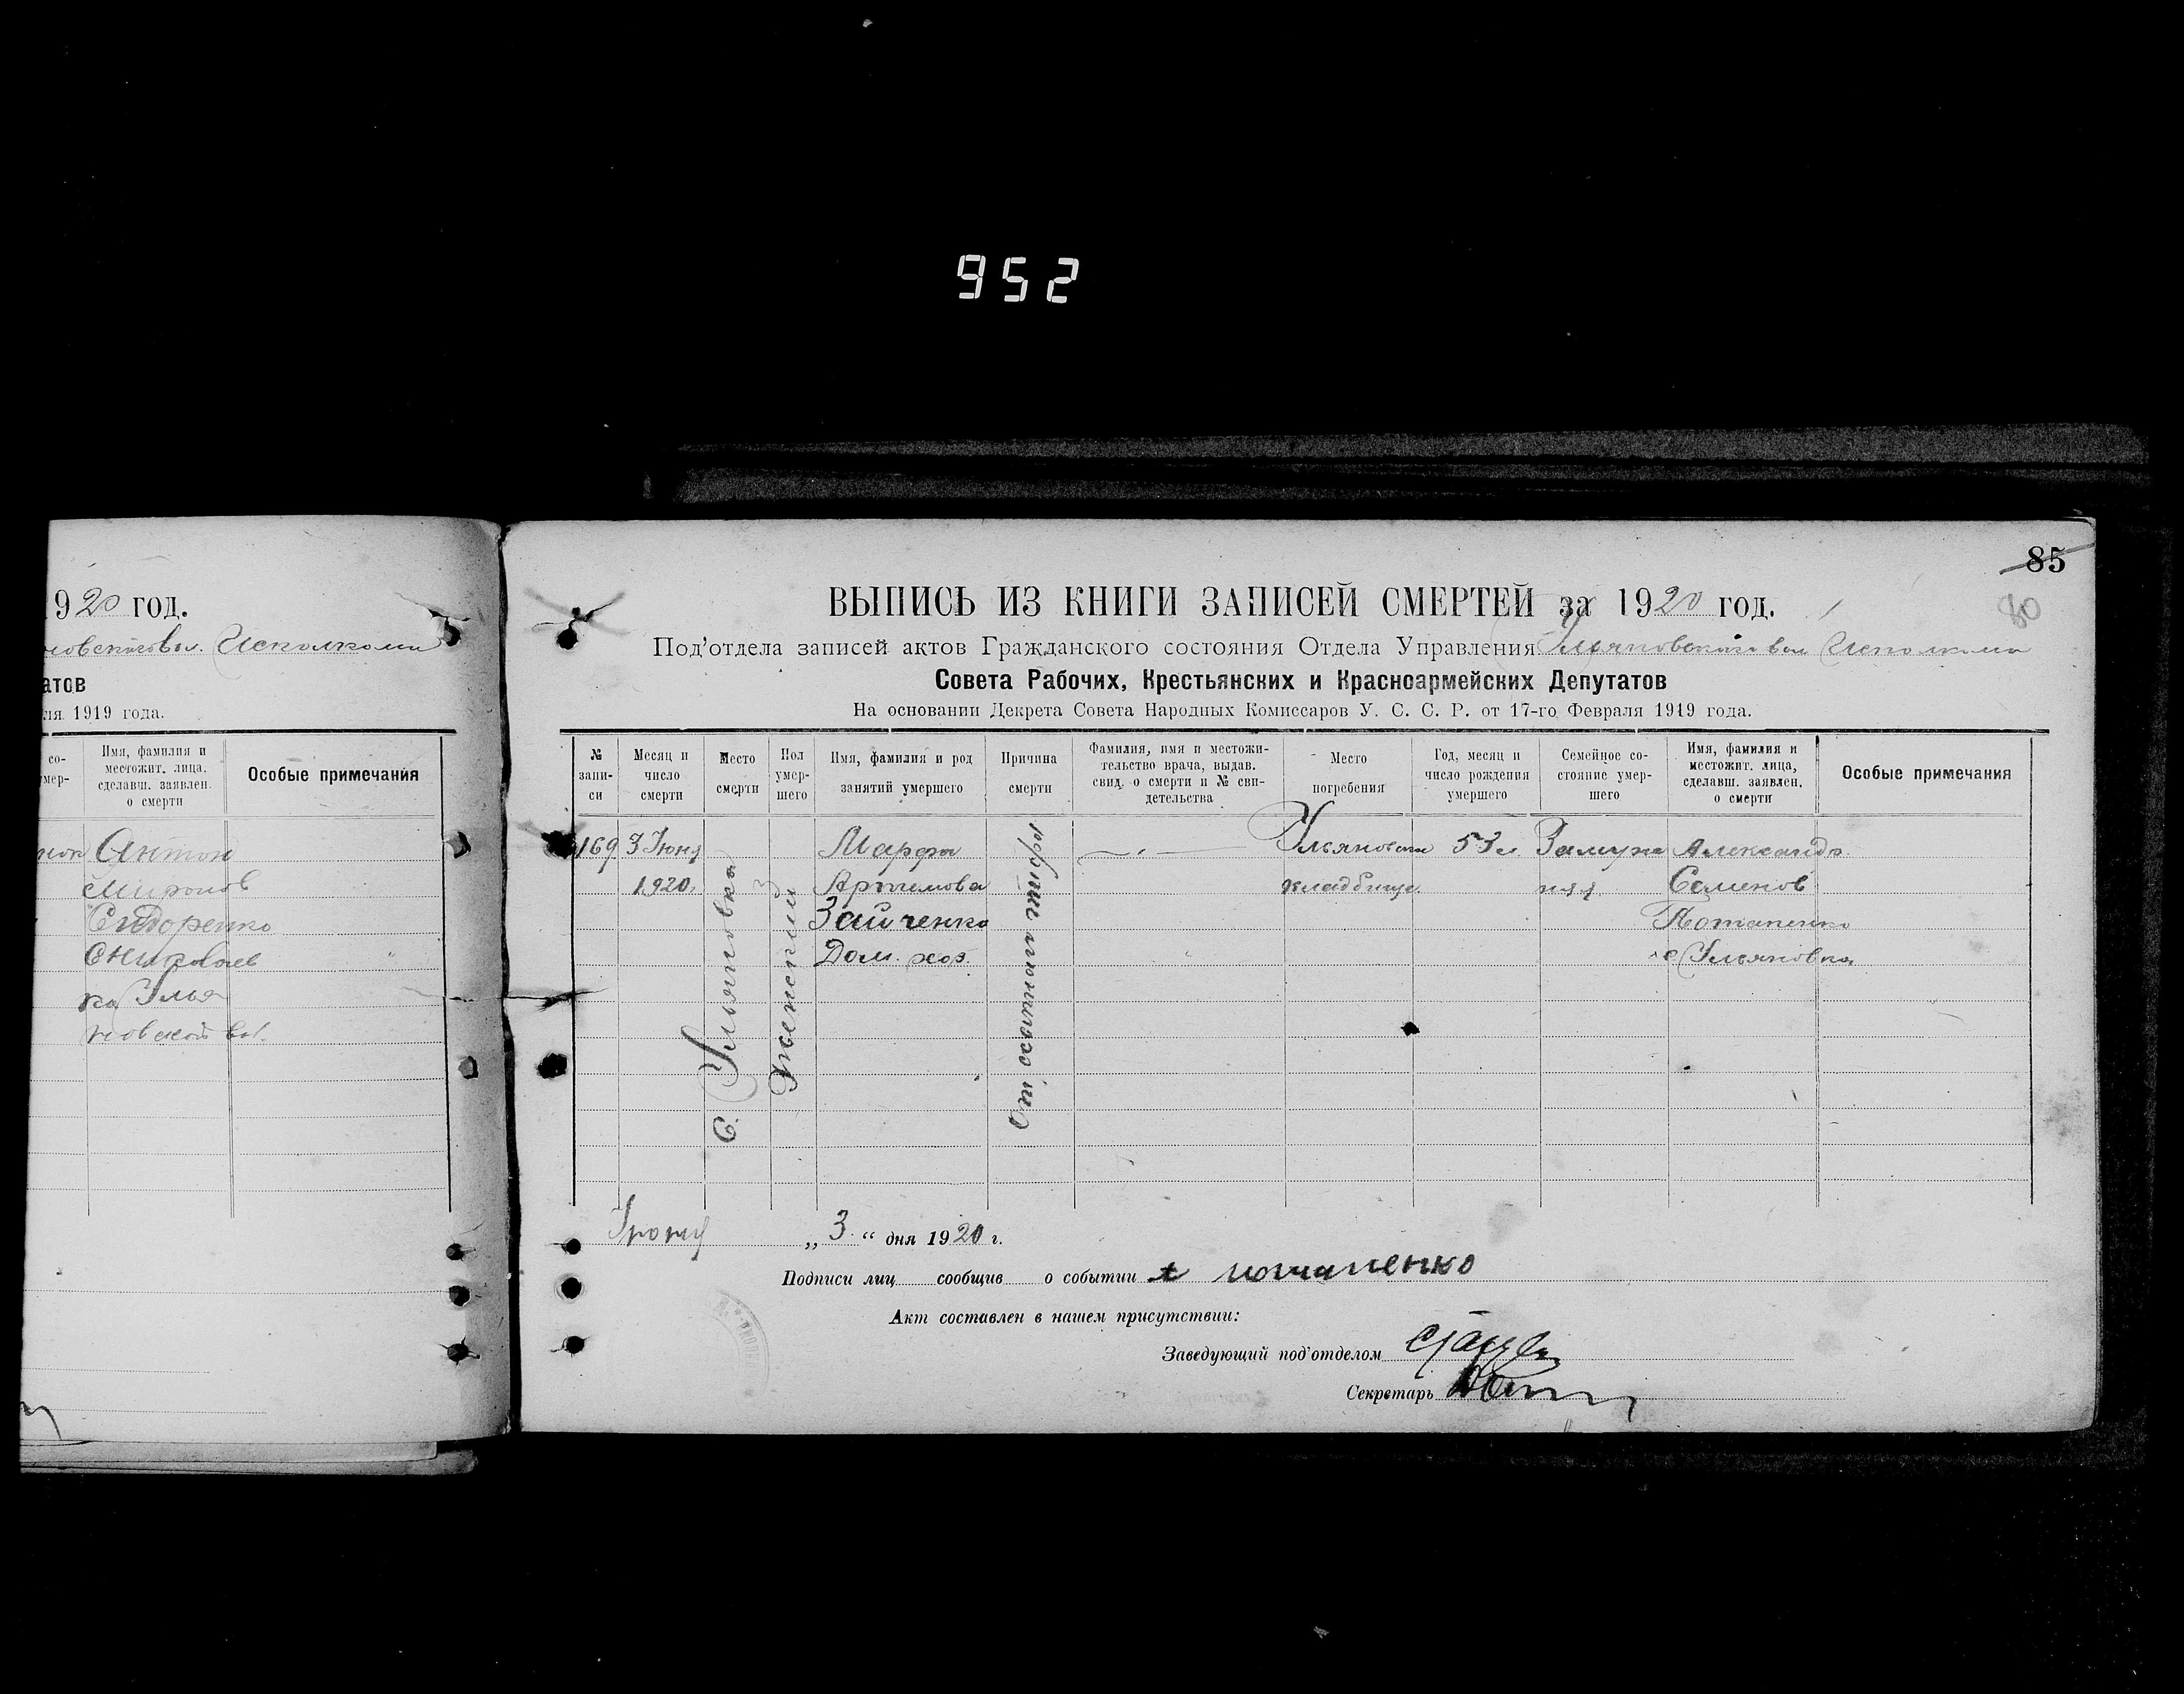 952
920 год.
Исполкома
атов
ля 1919 года.
со-
мер-
Имя, фамилия и
местожит. лица,
сделавш. заявлен.
о смерти
Особые примечания
Антон
Миронов
Сидоренко
новской вол.
85
80
ВЫПИСЬ ИЗ КНИГИ ЗАПИСЕЙ СМЕРТЕЙ за 1920 год.
Под'отдела записей актов Гражданского состояния Отдела Управления Ульяновского вол Исполкома
Совета Рабочих, Крестьянских и Красноармейских Депутатов
На основании Декрета Совета Народных Комиссаров У. С. С. Р. от 17-го Февраля 1919 года.
№
запи-
си
Месяц и
число
смерти
Место
смерти
Пол
умер-
шего
Имя, фамилия и род
занятий умершего
Причина
смерти
Фамилия, имя и местожи-
тельство врача, выдав.
свид. о смерти и № сви-
детельства
Место
погребения
Год, месяц и
число рождения
умершего
Семейное со-
стояние умер-
шего
Имя, фамилия и
местожит. лица,
сделавш. заявлен.
о смерти
Особые примечания
169
3 Июня
1920
С. Ульяновка
Женский
Марфа
Артемова
Зайченко
Дом. хоз.
От
Ульяновское
кладбище
53 л
Замуж
няя
Александр
Семенов
Потапенко
с Ульяновка
Июня „ 3 “ дня 1920 г.
Подписи лиц сообщив о событии Потапенко
Акт составлен в нашем присутствии:
Заведующий под'отделом
Секретарь